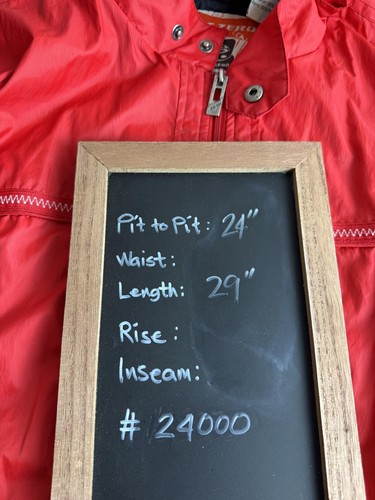 ZERO
Pit to Pit: 24"
Waist:
Length: 29"
Rise:
Inseam:
# 24000